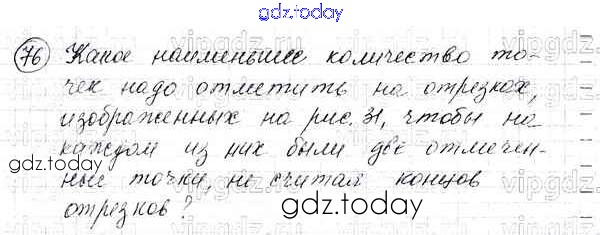 gdz.today
76 Какое наименьшее количество то-
чек надо отметить на отрезках,
изображенных на рис. 31, чтобы на
каждом из них были две отмечен-
ные точки, не считая концов
отрезков?
gdz.today
gdz.today
vipgdz